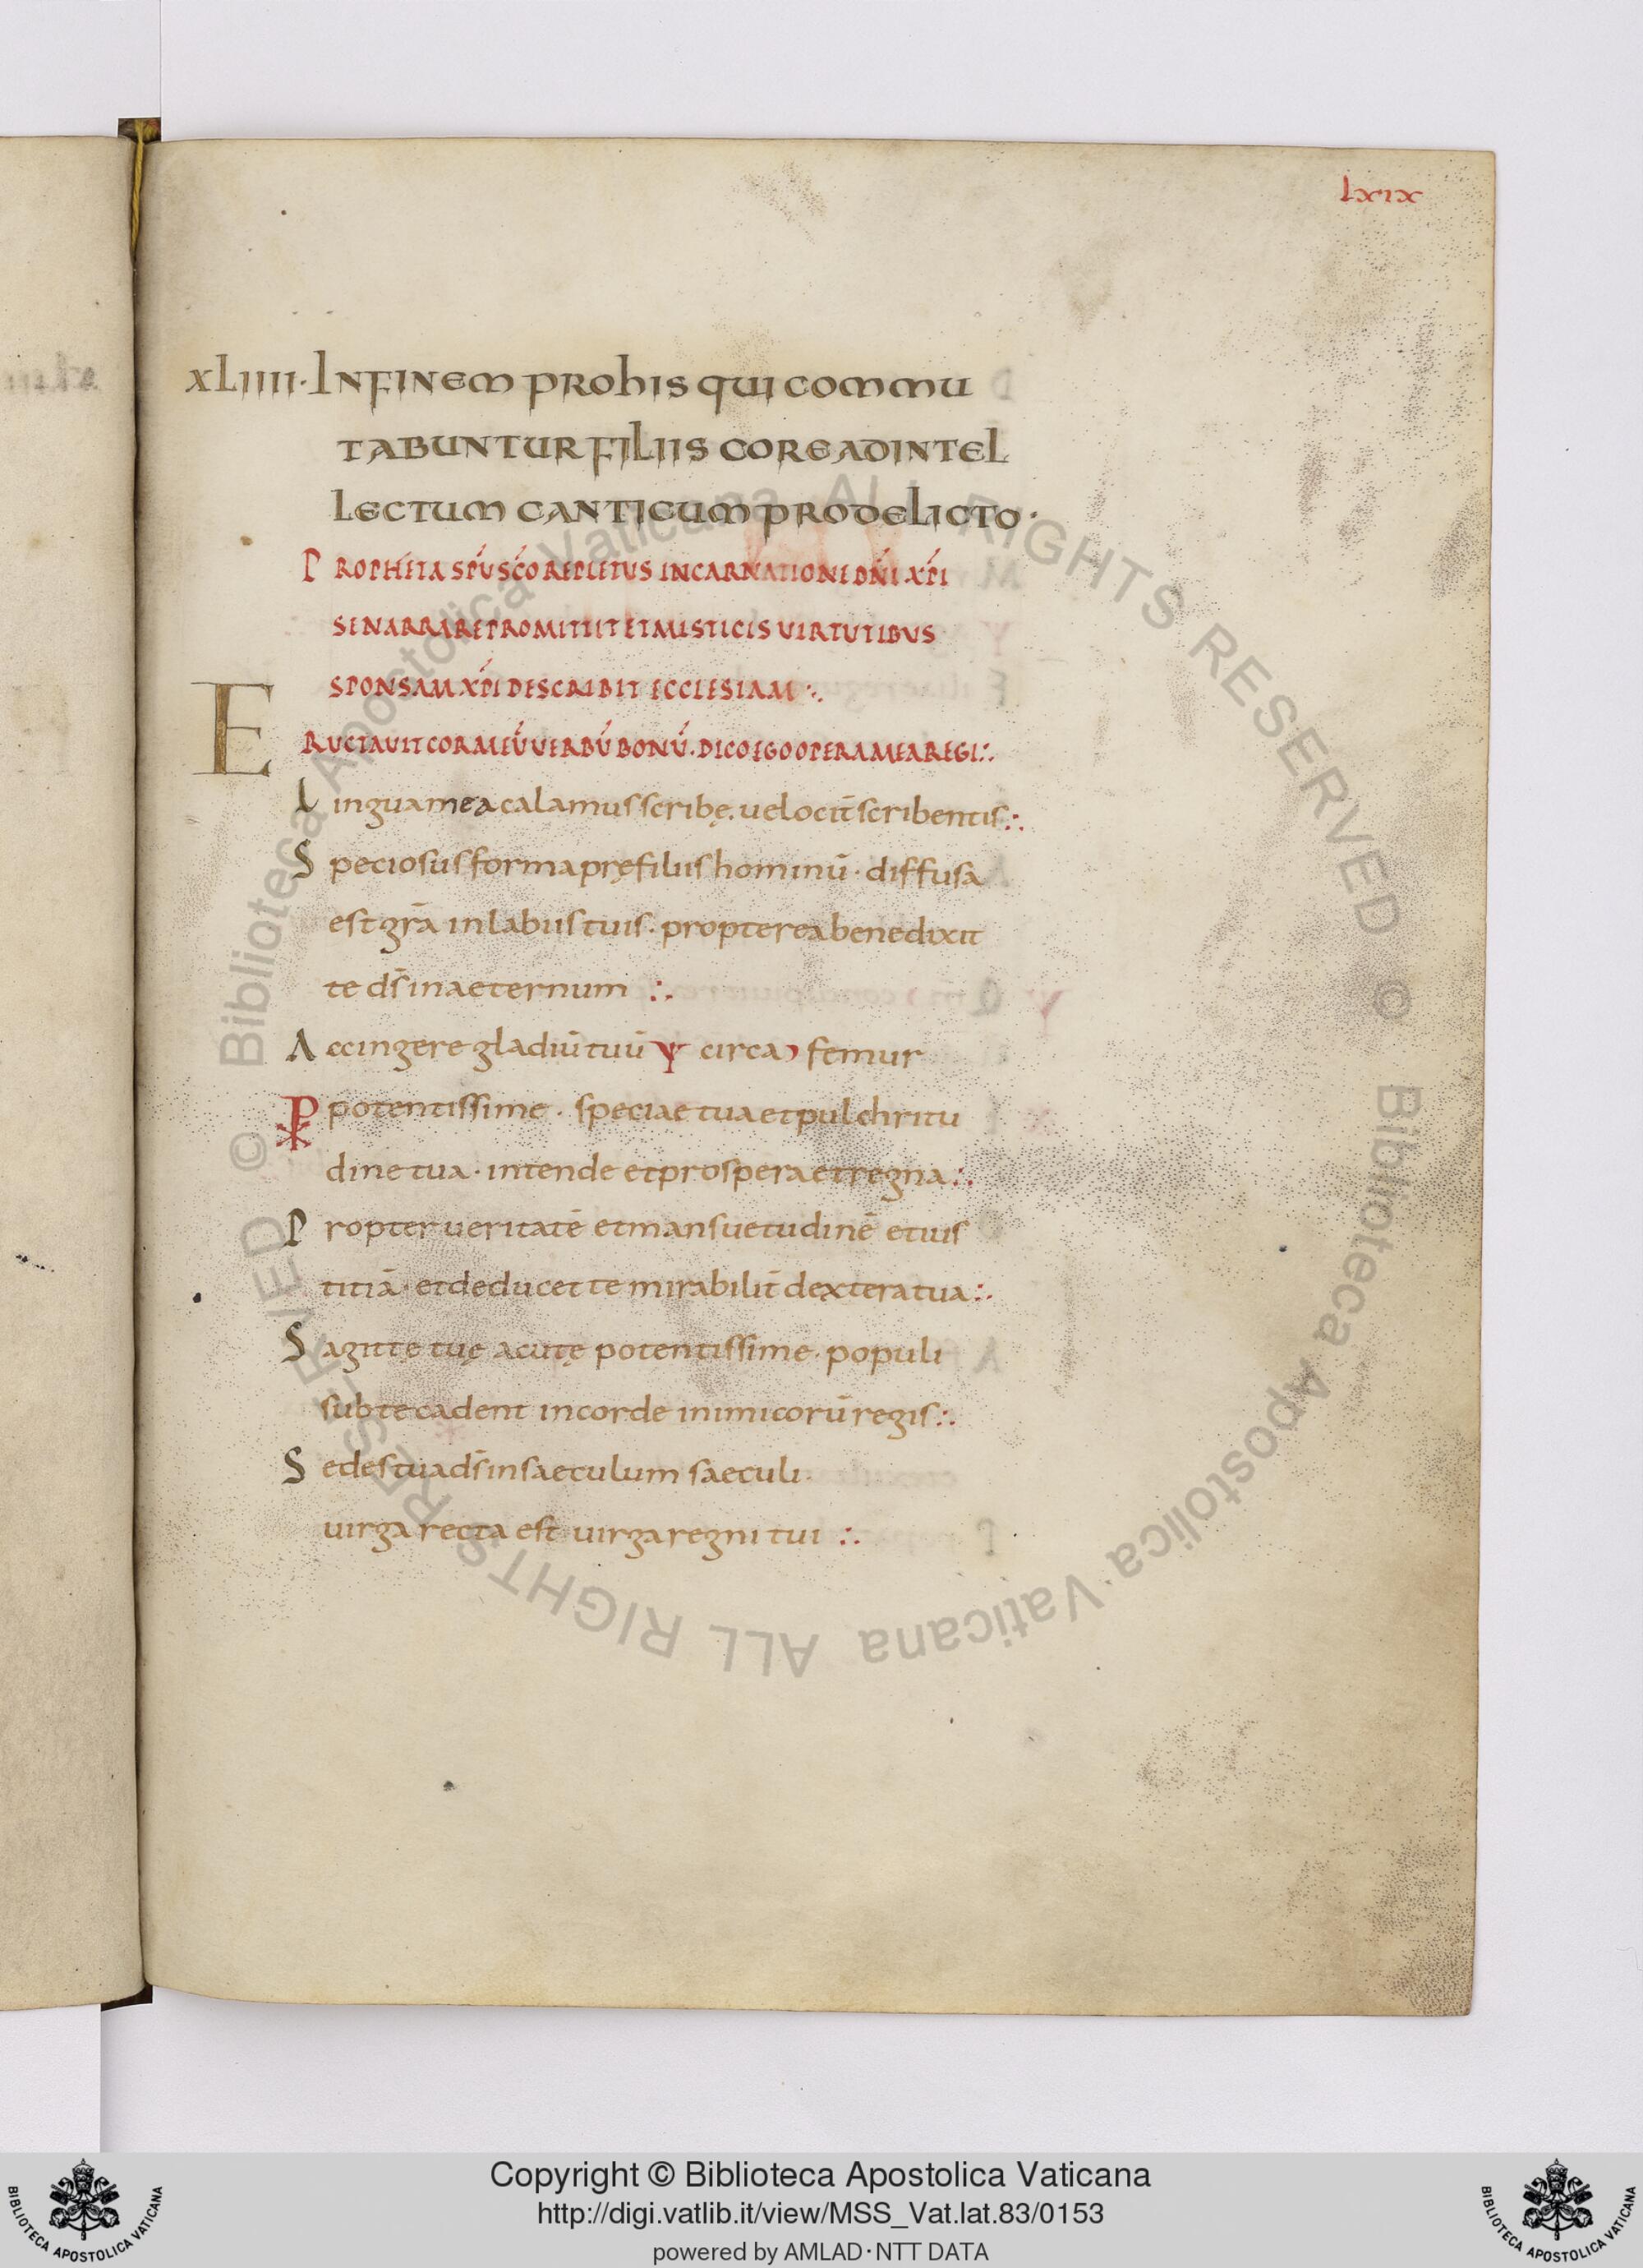 lxix
xLIIII· INFINEM PROHIS QUI COMMU
TABUNTUR FILIIS COREADINTEL
LECTUM CANTICUM PRODELICTO·
PROPHETA SPU SCO REPLETUS INCARNATIONE DNI XPI
SENARRARE PROMITTIT ET MISTICIS UIRTUTIBUS
SPONSAM XPI DESCRIBIT ECCLESIAM :.
ERUCTAUIT COR MEŪ UERBŪ BONŪ. DICO EGO OPERA MEA REGI :.
Lingua mea calamus scribę. uelocit̄ scribentis :.
Speciosus forma pręfiliis hominū · diffusa
est gr̄a inlabiis tuis · propterea benedixit
te ds̄ inaeternum :.
Accingere gladiū tuū circa femur
potentissime · speciae tua et pulchritu
dine tua · intende et prospera et regna :.
Propter ueritatē et mansuetudinē et ius
titiā · et deducet te mirabilit̄ dextera tua :.
Sagittę tuę acutę potentissime · populi
sub te cadent in corde inimicorū regis :.
Sedes tua ds̄ in saeculum saeculi ·
uirga recta est uirga regni tui :.
© Biblioteca Apostolica Vaticana ALL RIGHTS RESERVED © Biblioteca Apostolica Vaticana ALL RIGHTS RESERVED
Copyright © Biblioteca Apostolica Vaticana
http://digi.vatlib.it/view/MSS_Vat.lat.83/0153
powered by AMLAD·NTT DATA
BIBLIOTECA APOSTOLICA VATICANA
BIBLIOTECA APOSTOLICA VATICANA